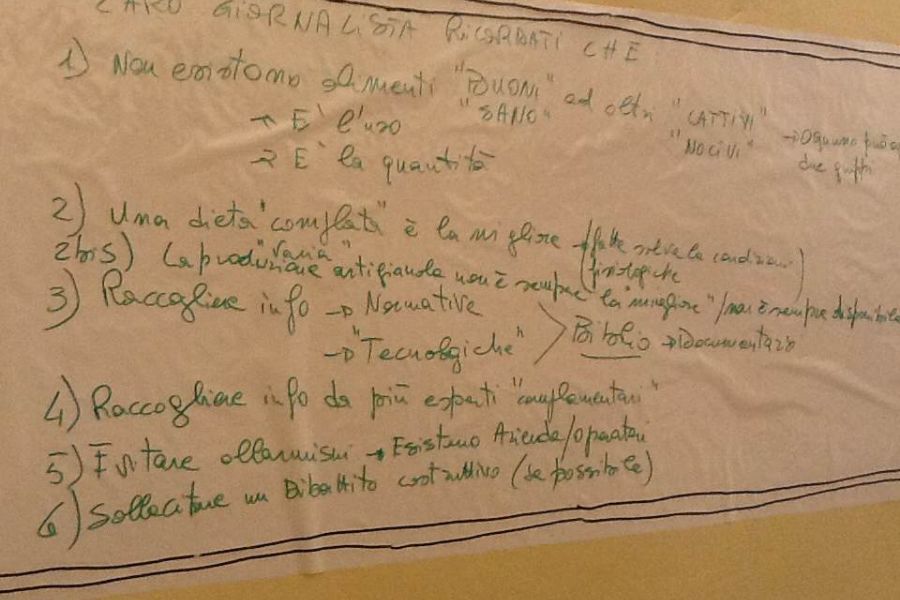 CARO GIORNALISTA RICORDATI CHE
1) Non esistono alimenti "BUONI" ed altri "CATTIVI"
"SANO" "NOCIVI" → Ognuno può
→ E' l'uso due
→ E' la quantità
2) Una dieta "completa" è la migliore → (fatte salve le condizioni
"varia" fisiologiche)
2bis) La produzione artigianale non è sempre "la migliore" / non è sempre disponibile
3) Raccogliere info → Normative
→ "Tecnologiche" > Biblio → Documentarsi
4) Raccogliere info da più esperti "complementari"
5) Evitare allarmismi → Esistono Aziende/operatori
6) Sollecitare un Dibattito costruttivo (se possibile)